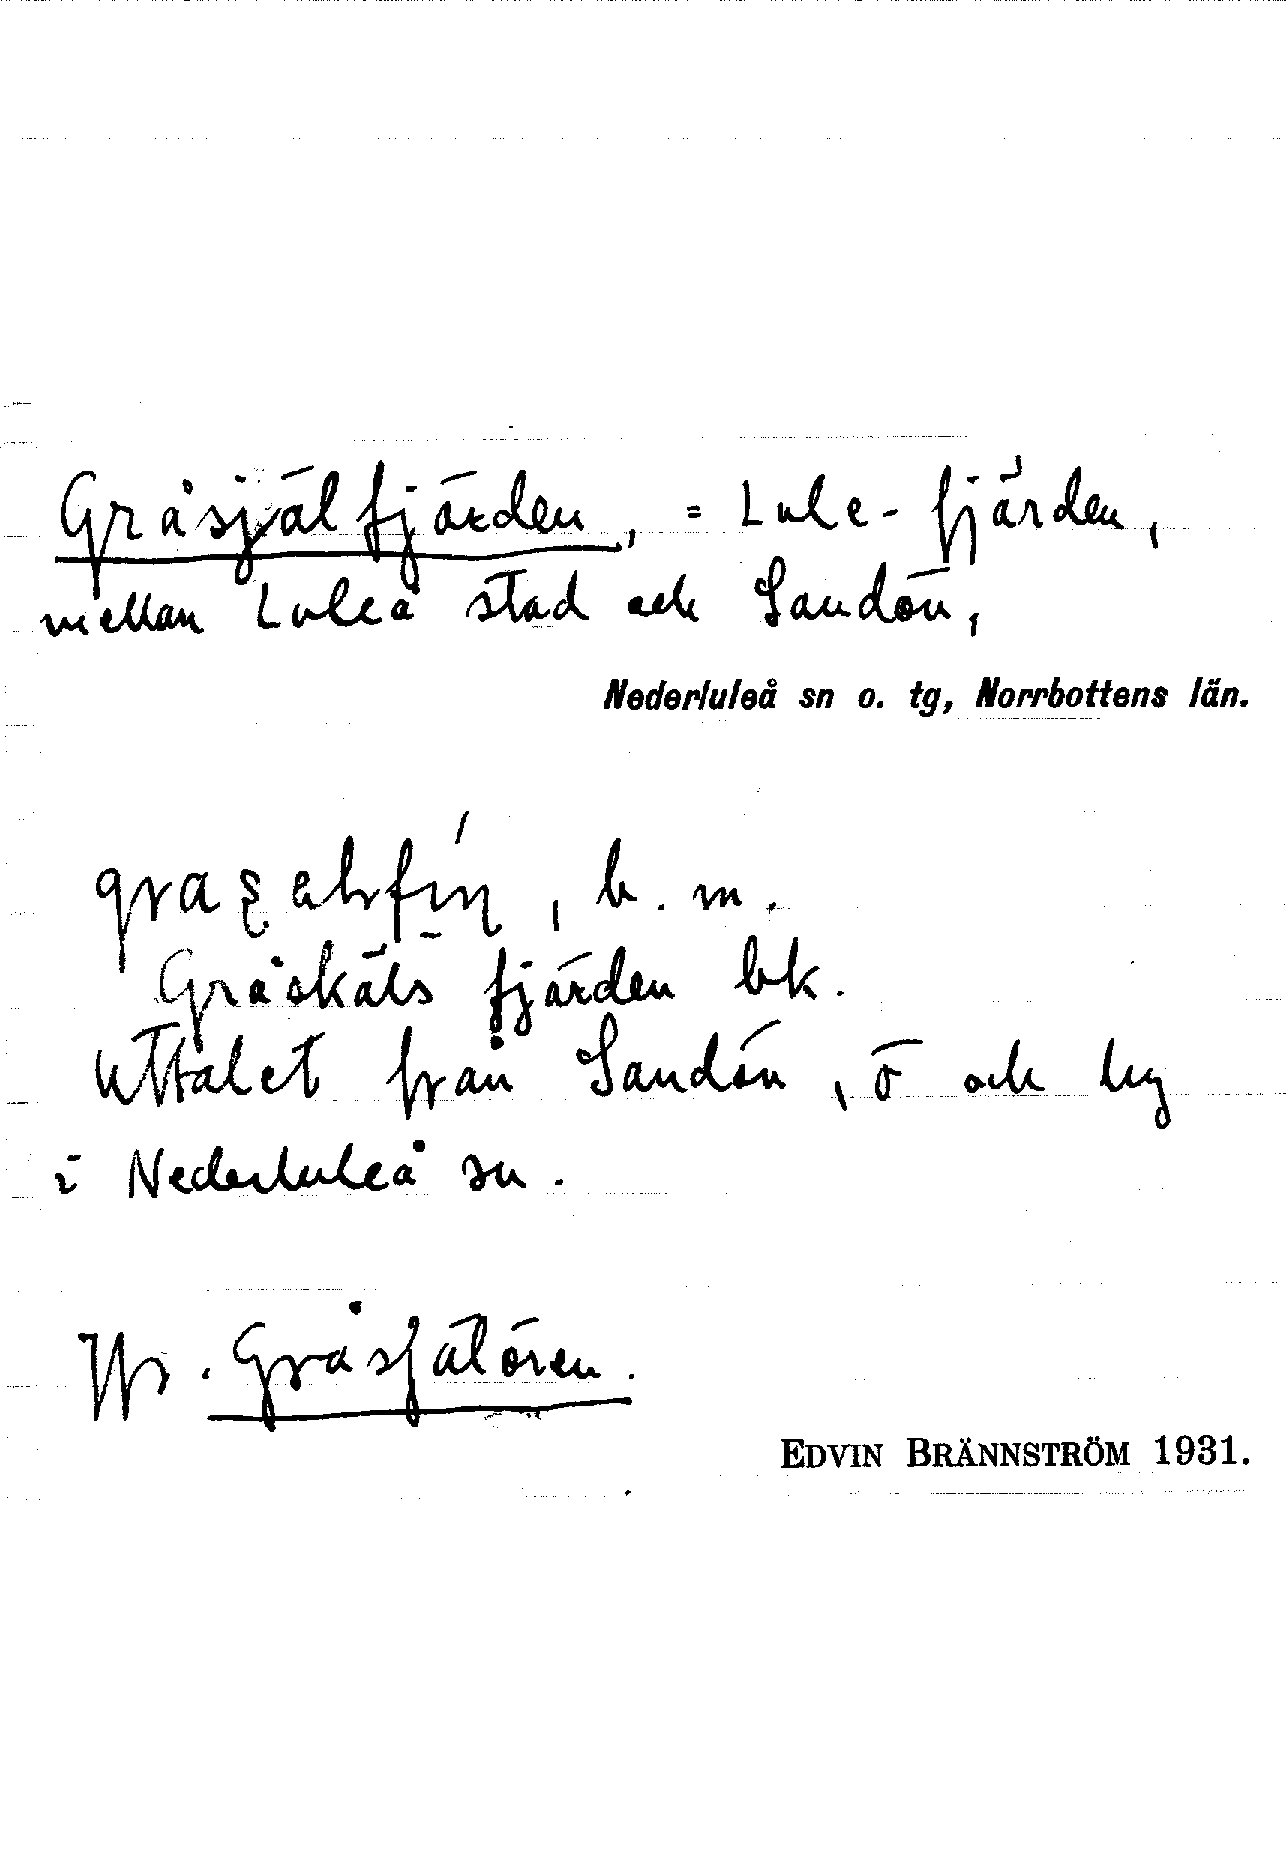 Gråsjälfjärden, = Lule-fjärden,
mellan Luleå stad och Sandön,
Nederluleå sn o. tg, Norrbottens län.
, b. m.
Gråskäls fjärden bk.
Uttalet från Sandön, ö och by
i Nederluleå sn.
Jfr. Gråsjälören.
EDVIN BRÄNNSTRÖM 1931.